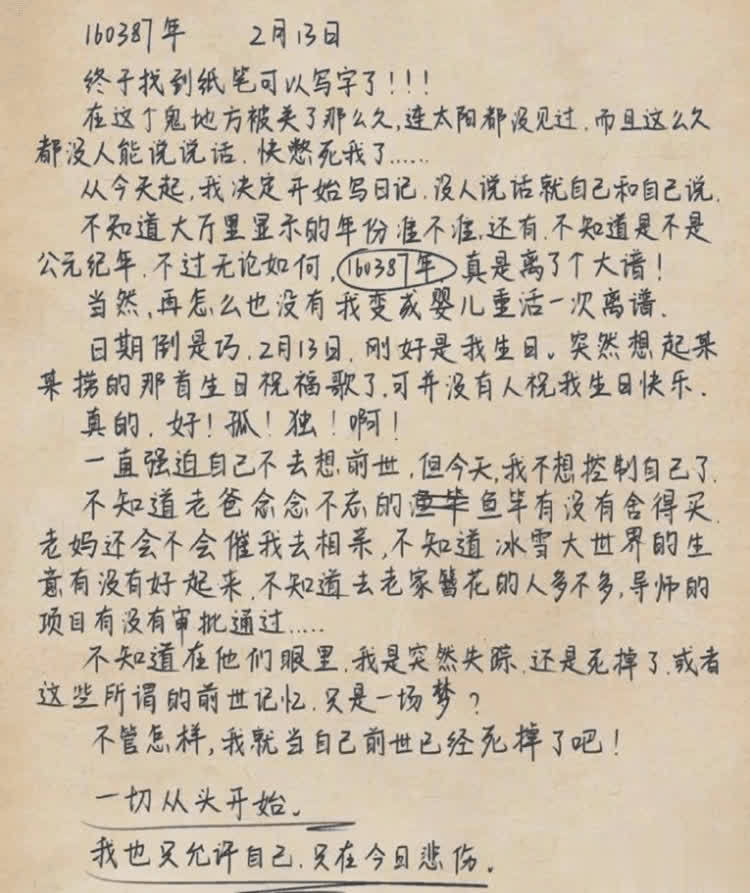 160387年 2月13日
终于找到纸笔可以写字了!!!
在这个鬼地方被关了那么久,连太阳都没见过.而且这么久
都没人能说说话.快憋死我了......
从今天起,我决定开始写日记.没人说话就自己和自己说.
不知道大厅里显示的年份准不准,还有.不知道是不是
公元纪年.不过无论如何,160387年真是离了个大谱!
当然,再怎么也没有我变成婴儿重活一次离谱.
日期倒是巧.2月13日.刚好是我生日。突然想起某
某捞的那首生日祝福歌了,可并没有人祝我生日快乐.
真的.好!孤!独!啊!
一直强迫自己不去想前世,但今天,我不想控制自己了.
不知道老爸念念不忘的鱼竿有没有舍得买.
老妈还会不会催我去相亲,不知道冰雪大世界的生
意有没有好起来.不知道去老家簪花的人多不多,导师的
项目有没有审批通过.....
不知道在他们眼里.我是突然失踪.还是死掉了.或者
这些所谓的前世记忆.只是一场梦?
不管怎样,我就当自己前世已经死掉了吧!
一切从头开始。
我也只允许自己.只在今日悲伤。